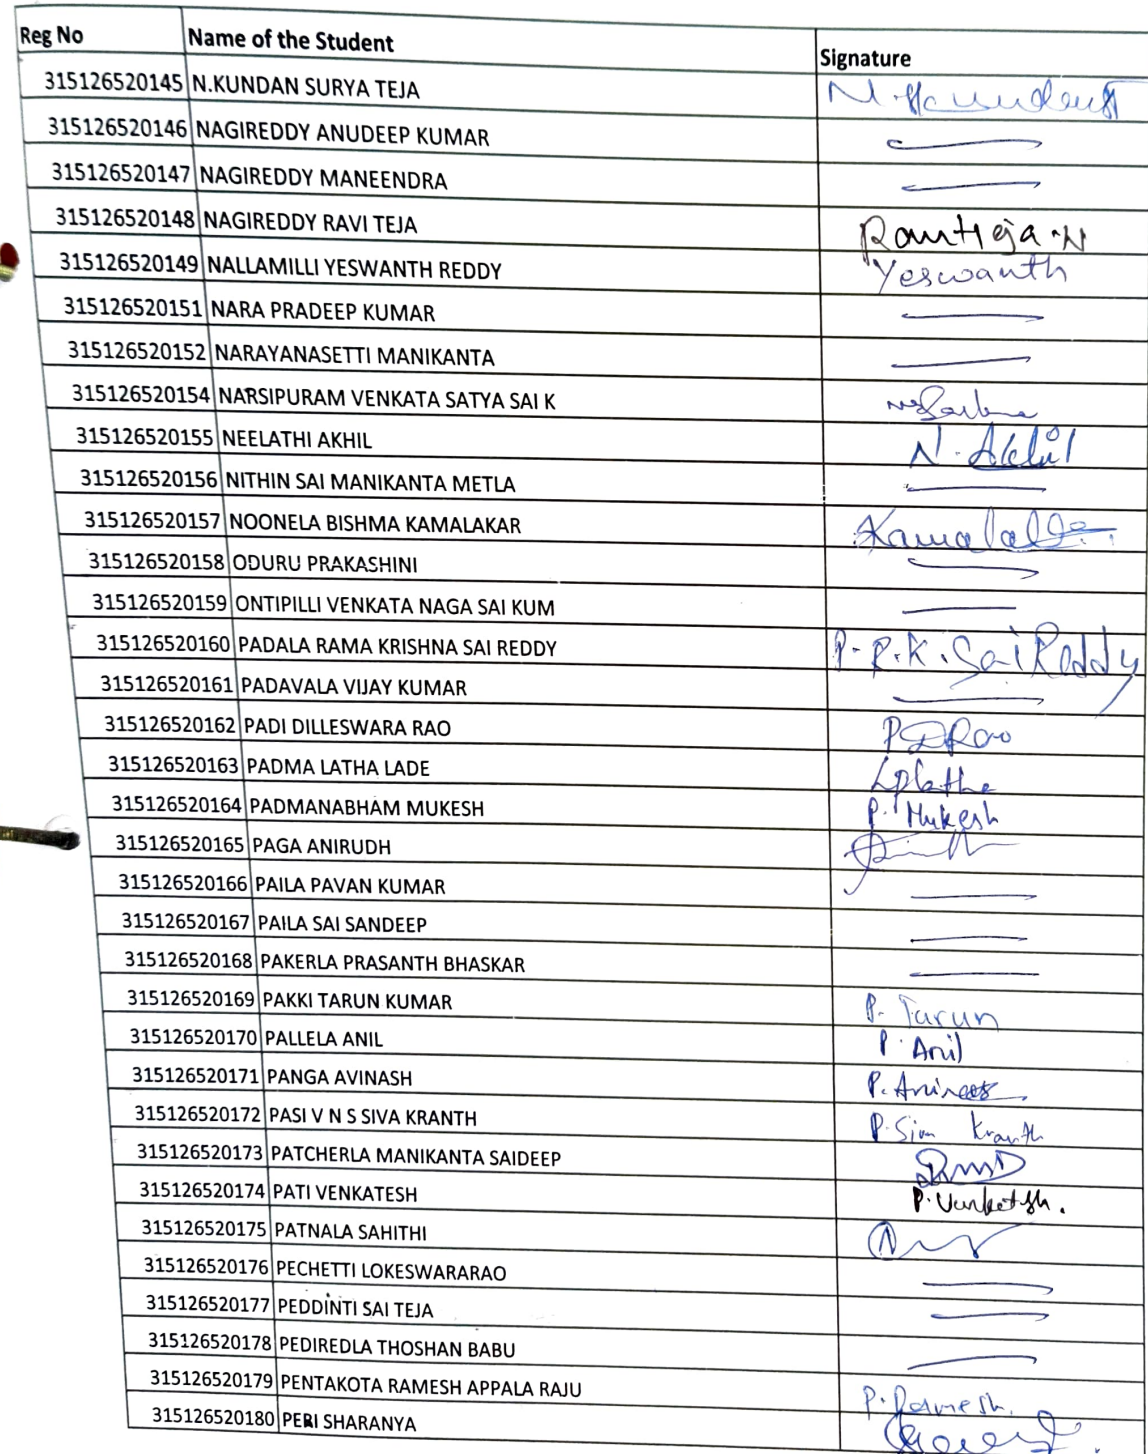 Reg No Name of the Student Signature
315126520145 N.KUNDAN SURYA TEJA
315126520146 NAGIREDDY ANUDEEP KUMAR
315126520147 NAGIREDDY MANEENDRA
315126520148 NAGIREDDY RAVI TEJA Raviteja.N
315126520149 NALLAMILLI YESWANTH REDDY Yeswanth
315126520151 NARA PRADEEP KUMAR
315126520152 NARAYANASETTI MANIKANTA
315126520154 NARSIPURAM VENKATA SATYA SAI K
315126520155 NEELATHI AKHIL N. Akhil
315126520156 NITHIN SAI MANIKANTA METLA
315126520157 NOONELA BISHMA KAMALAKAR
315126520158 ODURU PRAKASHINI
315126520159 ONTIPILLI VENKATA NAGA SAI KUM
315126520160 PADALA RAMA KRISHNA SAI REDDY P.R.K.Sai Reddy
315126520161 PADAVALA VIJAY KUMAR
315126520162 PADI DILLESWARA RAO PDRao
315126520163 PADMA LATHA LADE Lplatha
315126520164 PADMANABHAM MUKESH P. Mukesh
315126520165 PAGA ANIRUDH
315126520166 PAILA PAVAN KUMAR
315126520167 PAILA SAI SANDEEP
315126520168 PAKERLA PRASANTH BHASKAR
315126520169 PAKKI TARUN KUMAR P. Tarun
315126520170 PALLELA ANIL P. Anil
315126520171 PANGA AVINASH
315126520172 PASI V N S SIVA KRANTH P. Siva Kranth
315126520173 PATCHERLA MANIKANTA SAIDEEP
315126520174 PATI VENKATESH P. Venkatesh.
315126520175 PATNALA SAHITHI
315126520176 PECHETTI LOKESWARARAO
315126520177 PEDDINTI SAI TEJA
315126520178 PEDIREDLA THOSHAN BABU
315126520179 PENTAKOTA RAMESH APPALA RAJU P. Ramesh.
315126520180 PERI SHARANYA